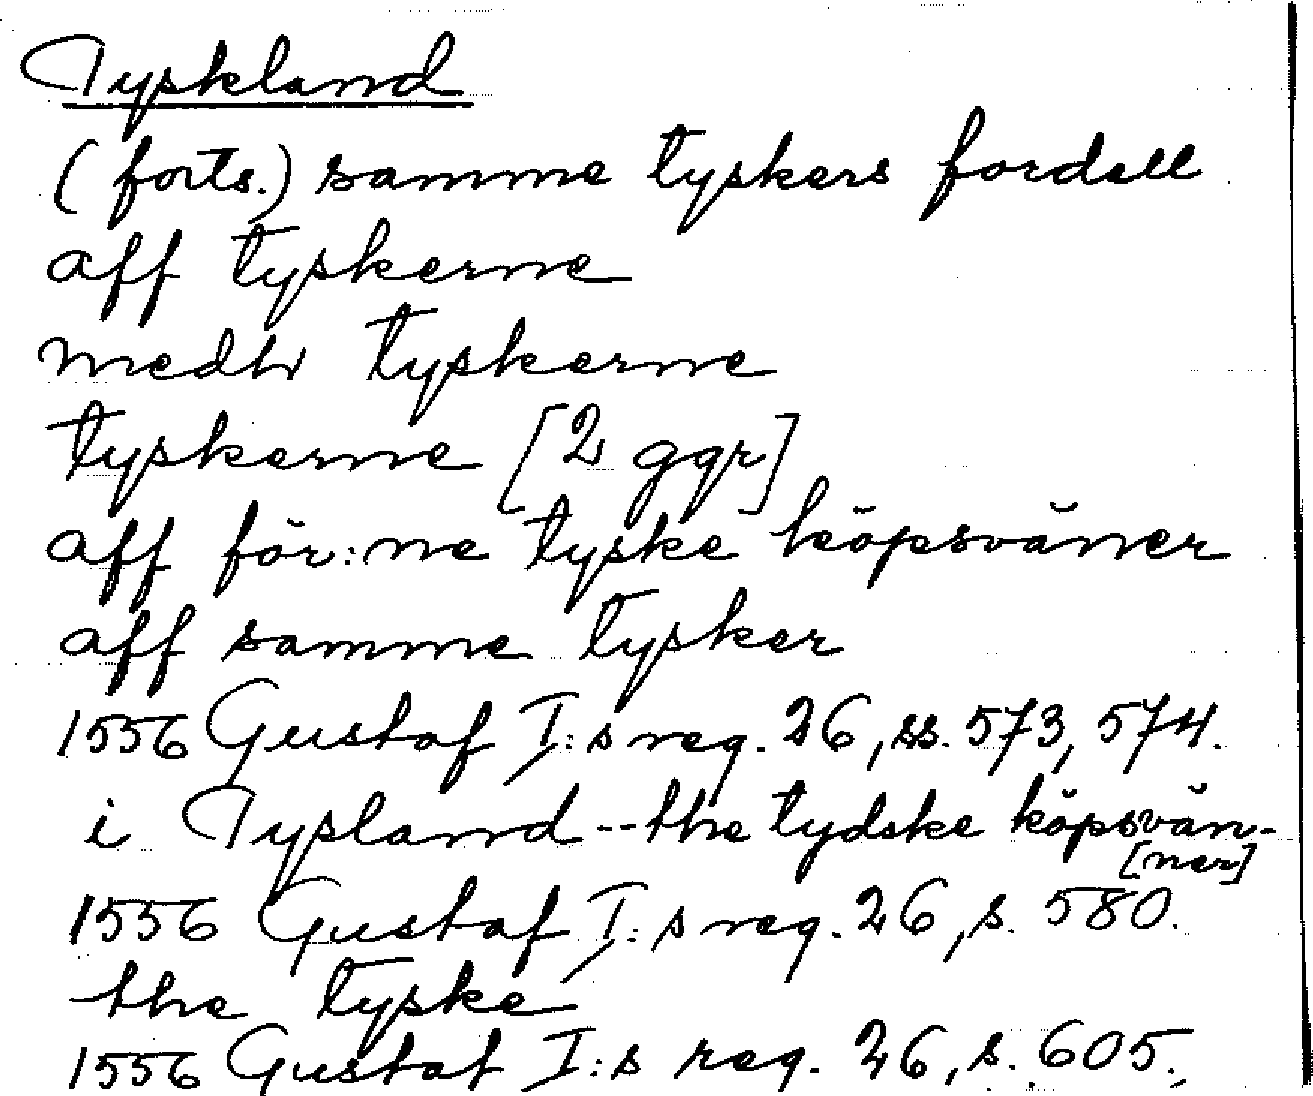 Tyskland
(forts.) samme tyskers fordell
aff tyskerne
medh tyskerne
tyskerne [2 ggr]
aff för:ne tyske köpsväner
aff samme tysker
1556 Gustaf I:s reg. 26, ss. 573, 574.
i Tysland--the tydske köpsvän-
[ner]
1556 Gustaf I:s reg. 26, s. 580.
the tyske
1556 Gustaf I:s reg. 26, s. 605.